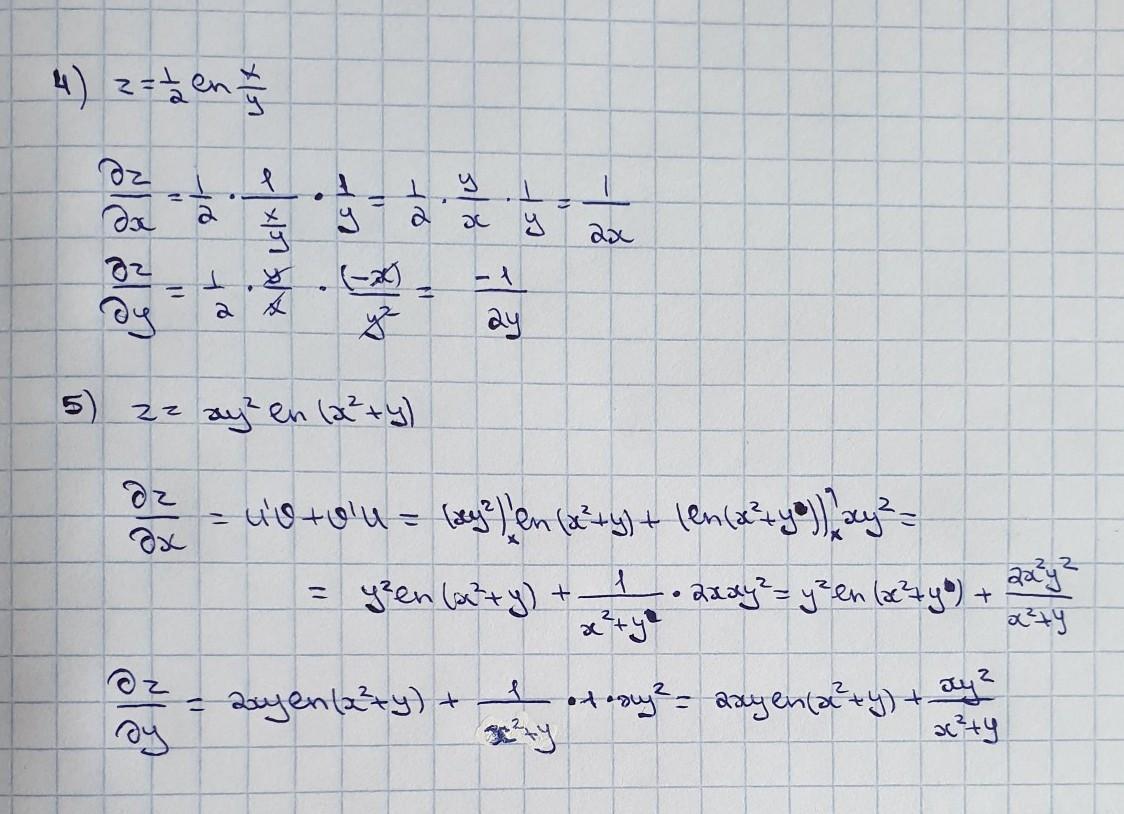 4) z = 1/2 ln x/y
∂z/∂x = 1/2 · 1/(x/y) · 1/y = 1/2 · y/x · 1/y = 1/(2x)
∂z/∂y = 1/2 · y/x · (-x)/y² = -1/(2y)
5) z = xy² ln(x²+y)
∂z/∂x = u'v + v'u = (xy²)'ₓ ln(x²+y) + (ln(x²+y))'ₓ xy² =
= y² ln(x²+y) + 1/(x²+y) · 2xxy² = y² ln(x²+y) + 2x²y²/(x²+y)
∂z/∂y = 2xy ln(x²+y) + 1/(x²+y) · 1 · xy² = 2xy ln(x²+y) + xy²/(x²+y)